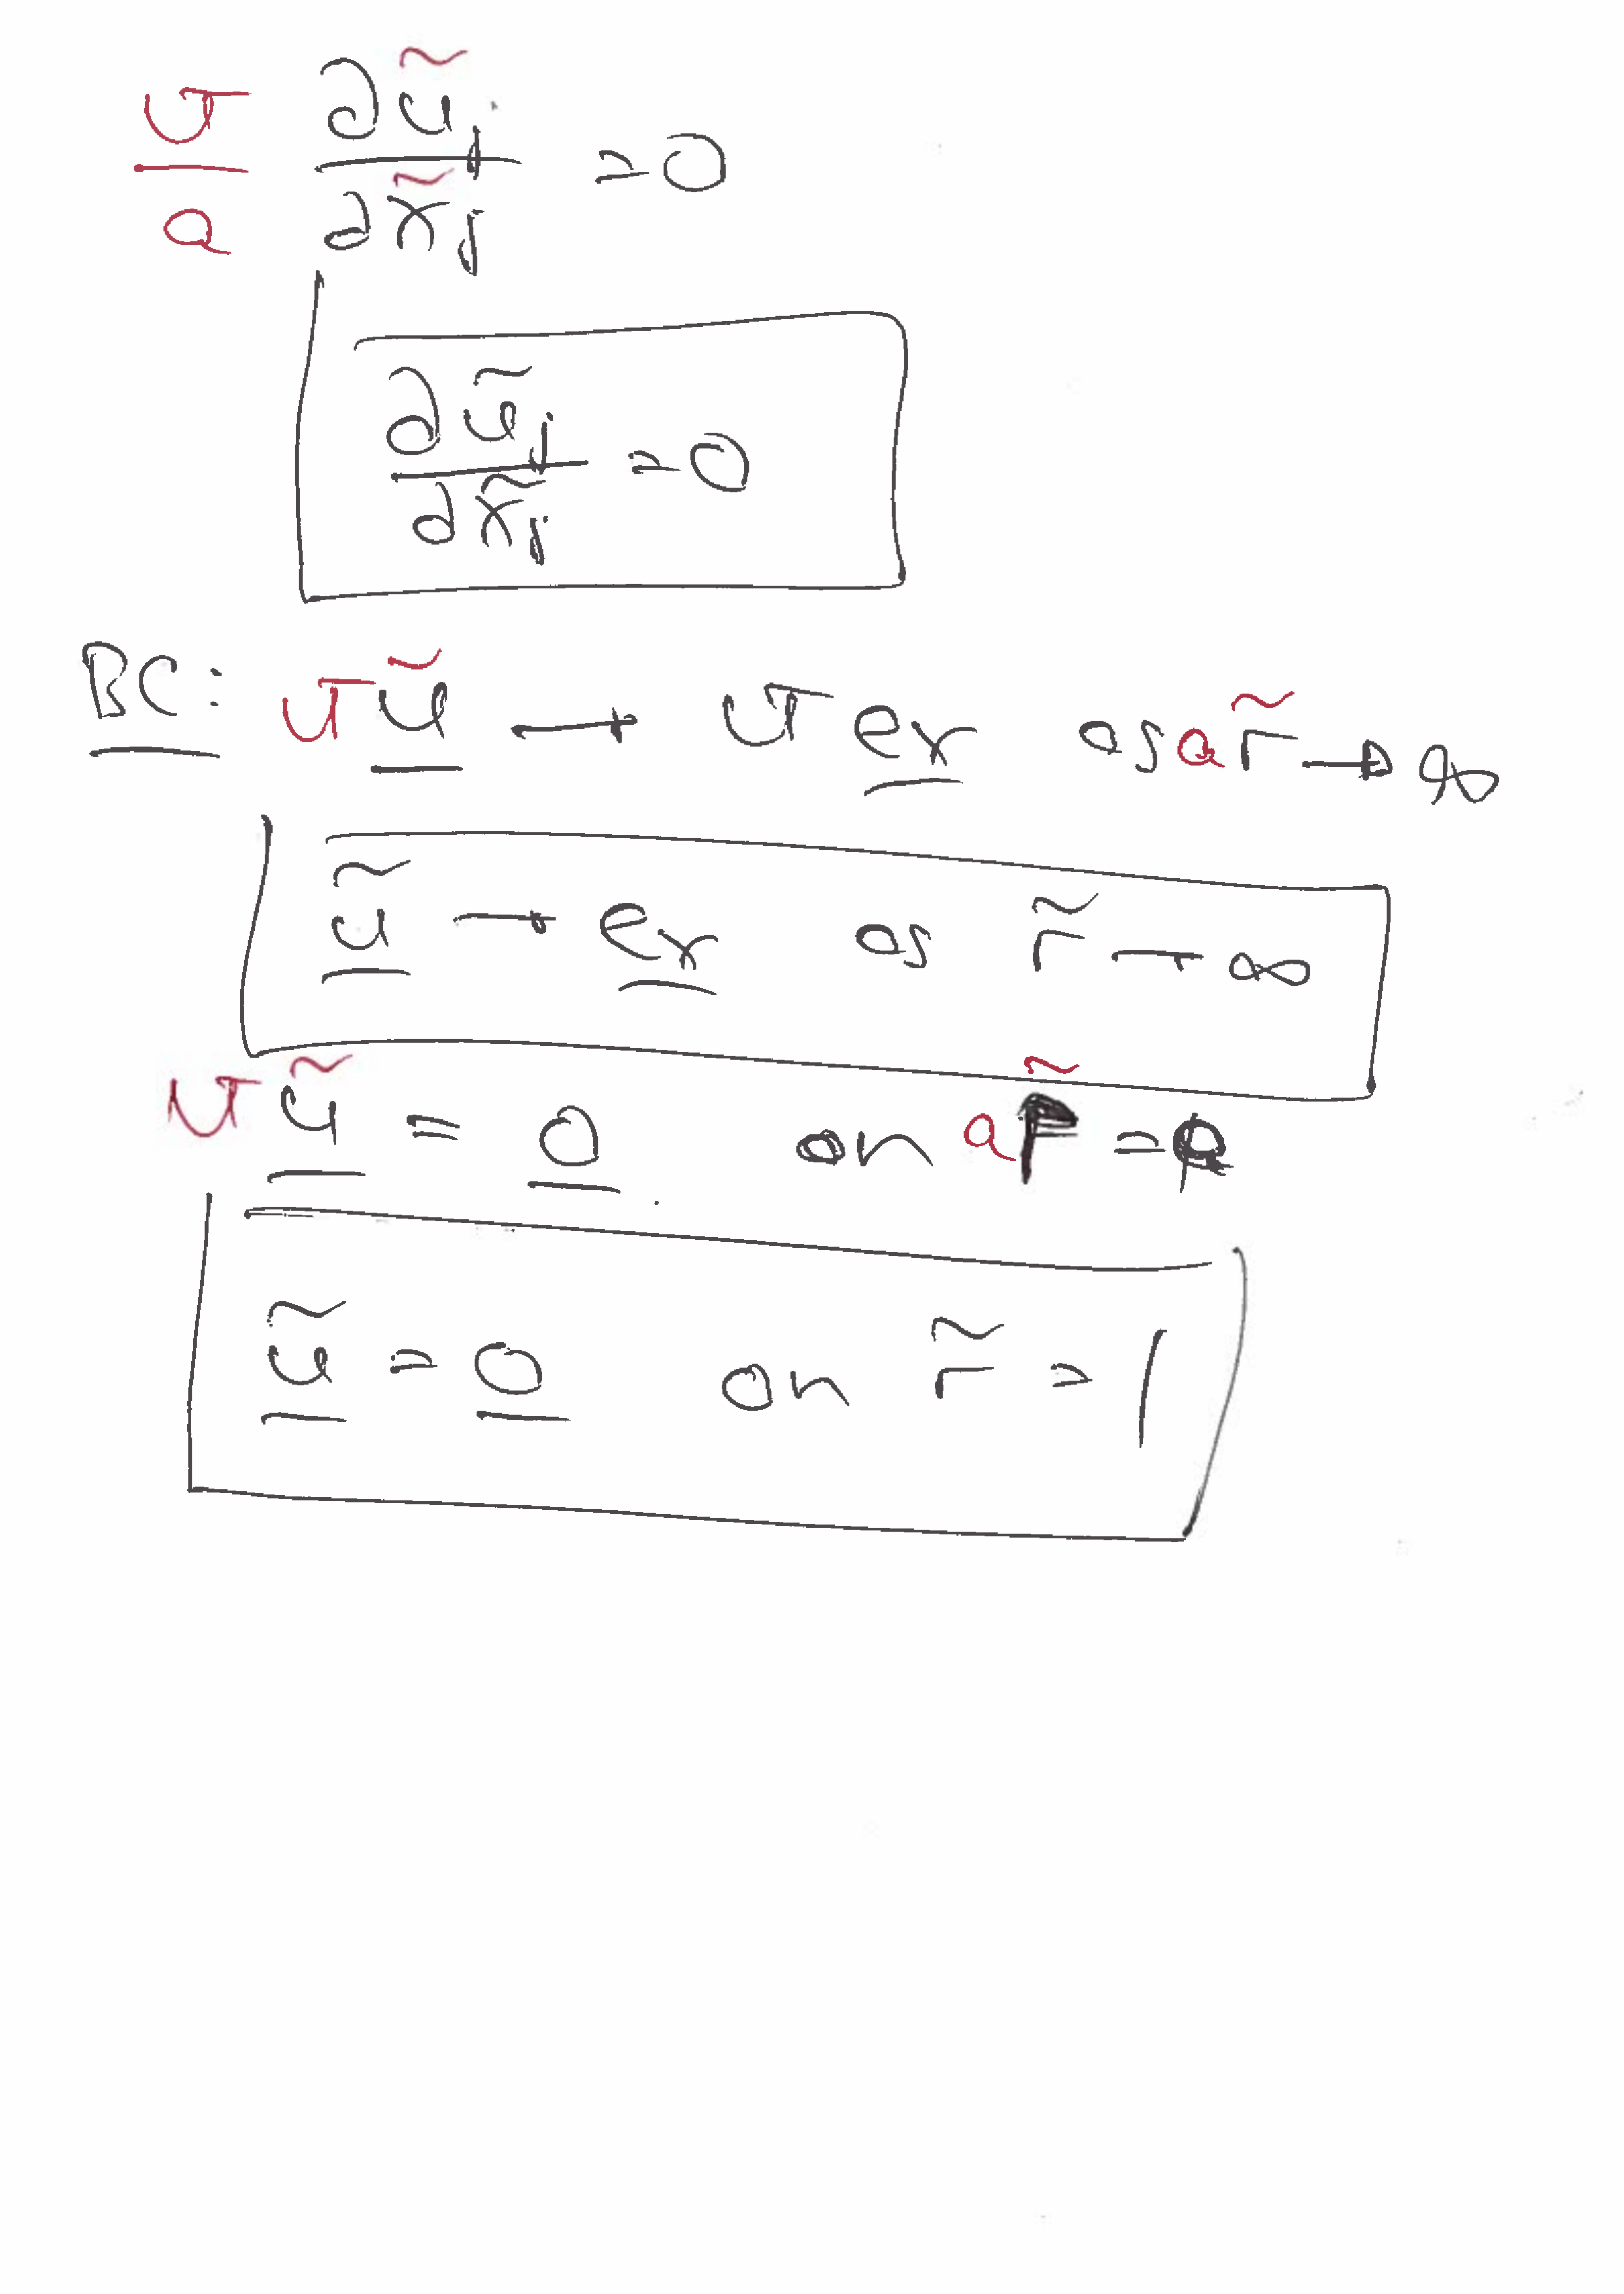 U/a ∂ũⱼ/∂x̃ⱼ = 0
∂ũⱼ/∂x̃ⱼ = 0
BC: U ũ → U eₓ as a r̃ → ∞
ũ → eₓ as r̃ → ∞
U ũ = 0 on a r̃ = a
ũ = 0 on r̃ = 1